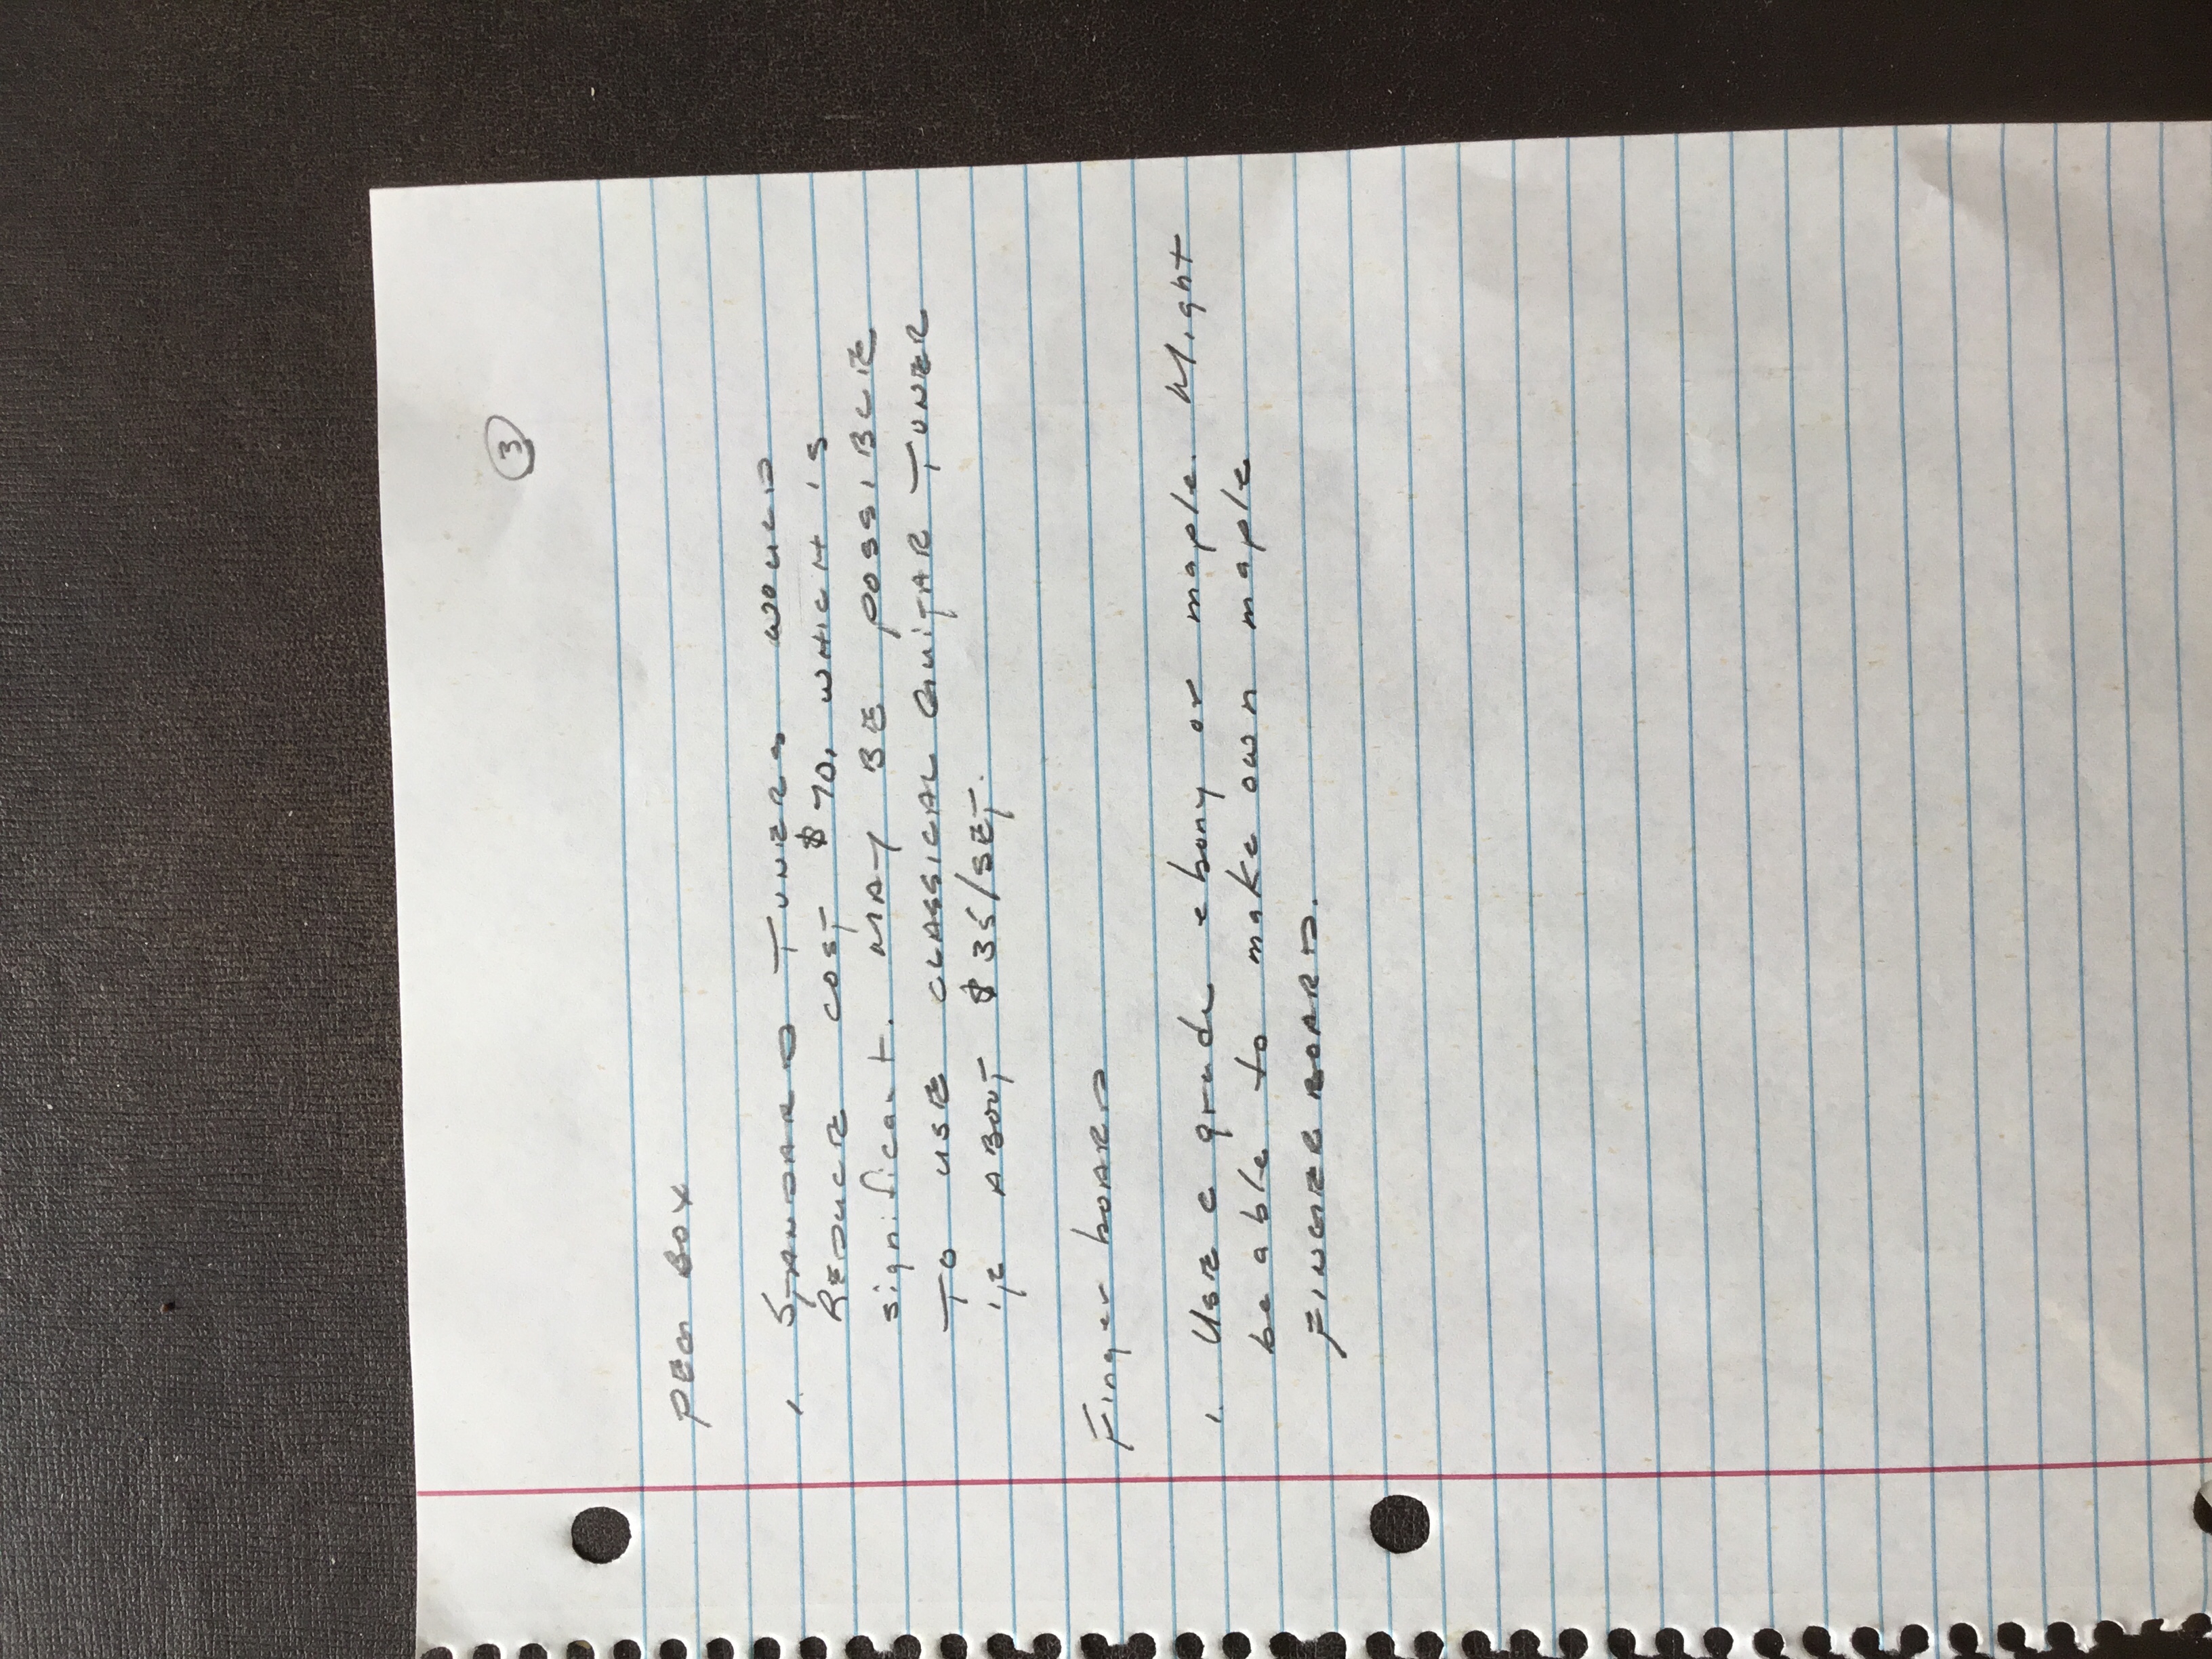 3
PEG BOX
1. STANDARD TUNERS WOULD
REDUCE COST $70, WHICH IS
significant. MAY BE POSSIBLE
TO USE CLASSICAL GUITAR TUNER
IE ABOUT $35/SET.
Finger boARD
1. USE C grade ebony or maple. Might
be able to make own maple
FINGER BOARD.